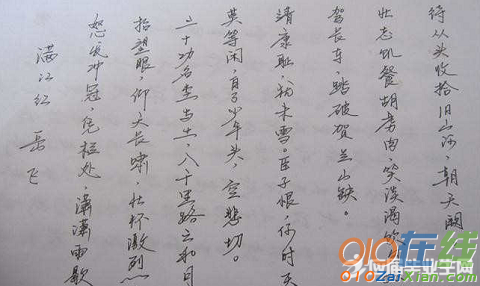 满江红
岳飞
怒发冲冠,凭栏处,潇潇雨歇
抬望眼,仰天长啸,壮怀激烈
三十功名尘与土,八千里路云和月
莫等闲,白了少年头,空悲切。
靖康耻,犹未雪。臣子恨,何时灭
驾长车,踏破贺兰山缺。
壮志饥餐胡虏肉,笑谈渴饮
待从头收拾旧山河,朝天阙
010在线
010zaixian.com